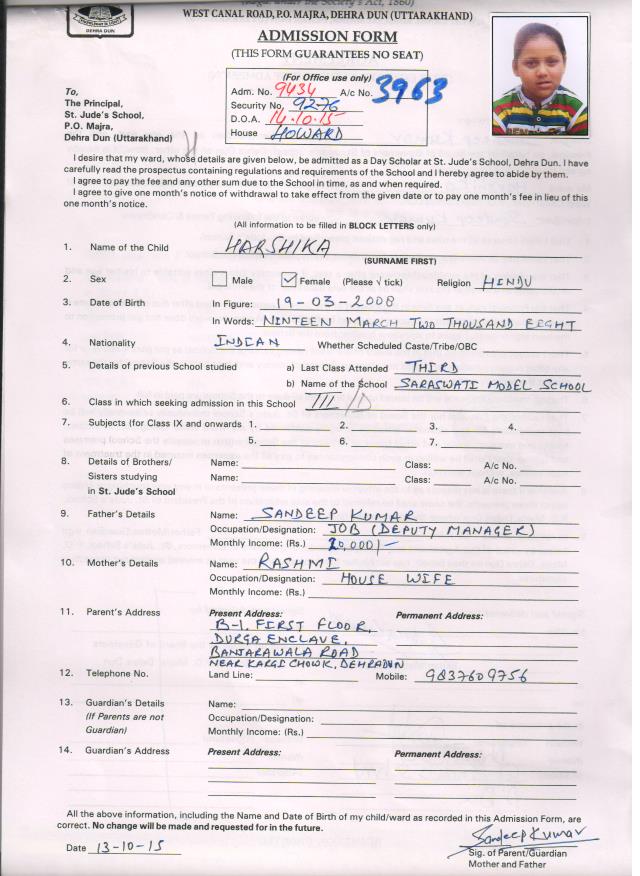 (Regd. under the Society's Act, 1860)
DEHRA DUN
WEST CANAL ROAD, P.O. MAJRA, DEHRA DUN (UTTARAKHAND)
ADMISSION FORM
(THIS FORM GUARANTEES NO SEAT)
(For Office use only)
Adm. No. 9434 A/c No. 3963
Security No. 9276
D.O.A. 14.10.15
House HOWARD
To,
The Principal,
St. Jude's School,
P.O. Majra,
Dehra Dun (Uttarakhand)
I desire that my ward, whose details are given below, be admitted as a Day Scholar at St. Jude's School, Dehra Dun. I have
carefully read the prospectus containing regulations and requirements of the School and I hereby agree to abide by them.
I agree to pay the fee and any other sum due to the School in time, as and when required.
I agree to give one month's notice of withdrawal to take effect from the given date or to pay one month's fee in lieu of this
one month's notice.
(All information to be filled in BLOCK LETTERS only)
1. Name of the Child HARSHIKA
(SURNAME FIRST)
2. Sex Male ✓ Female (Please √ tick) Religion HINDU
3. Date of Birth In Figure: 19-03-2008
In Words: NINTEEN MARCH TWO THOUSAND EIGHT
4. Nationality INDIAN Whether Scheduled Caste/Tribe/OBC
5. Details of previous School studied a) Last Class Attended THIRD
b) Name of the School SARASWATI MODEL SCHOOL
6. Class in which seeking admission in this School III/D
7. Subjects (for Class IX and onwards 1. 2. 3. 4.
5. 6. 7.
8. Details of Brothers/ Name: Class: A/c No.
Sisters studying Name: Class: A/c No.
in St. Jude's School
9. Father's Details Name: SANDEEP KUMAR
Occupation/Designation: JOB (DEPUTY MANAGER)
Monthly Income: (Rs.) 20,000/-
10. Mother's Details Name: RASHMI
Occupation/Designation: HOUSE WIFE
Monthly Income: (Rs.)
11. Parent's Address Present Address: Permanent Address:
B-1, FIRST FLOOR,
DURGA ENCLAVE,
BANJARAWALA ROAD
NEAR KARGI CHOWK, DEHRADUN
12. Telephone No. Land Line: Mobile: 9837609756
13. Guardian's Details Name:
(If Parents are not Occupation/Designation:
Guardian) Monthly Income: (Rs.)
14. Guardian's Address Present Address: Permanent Address:
All the above information, including the Name and Date of Birth of my child/ward as recorded in this Admission Form, are
correct. No change will be made and requested for in the future.
Sandeep Kumar
Date 13-10-15
Sig. of Parent/Guardian
Mother and Father